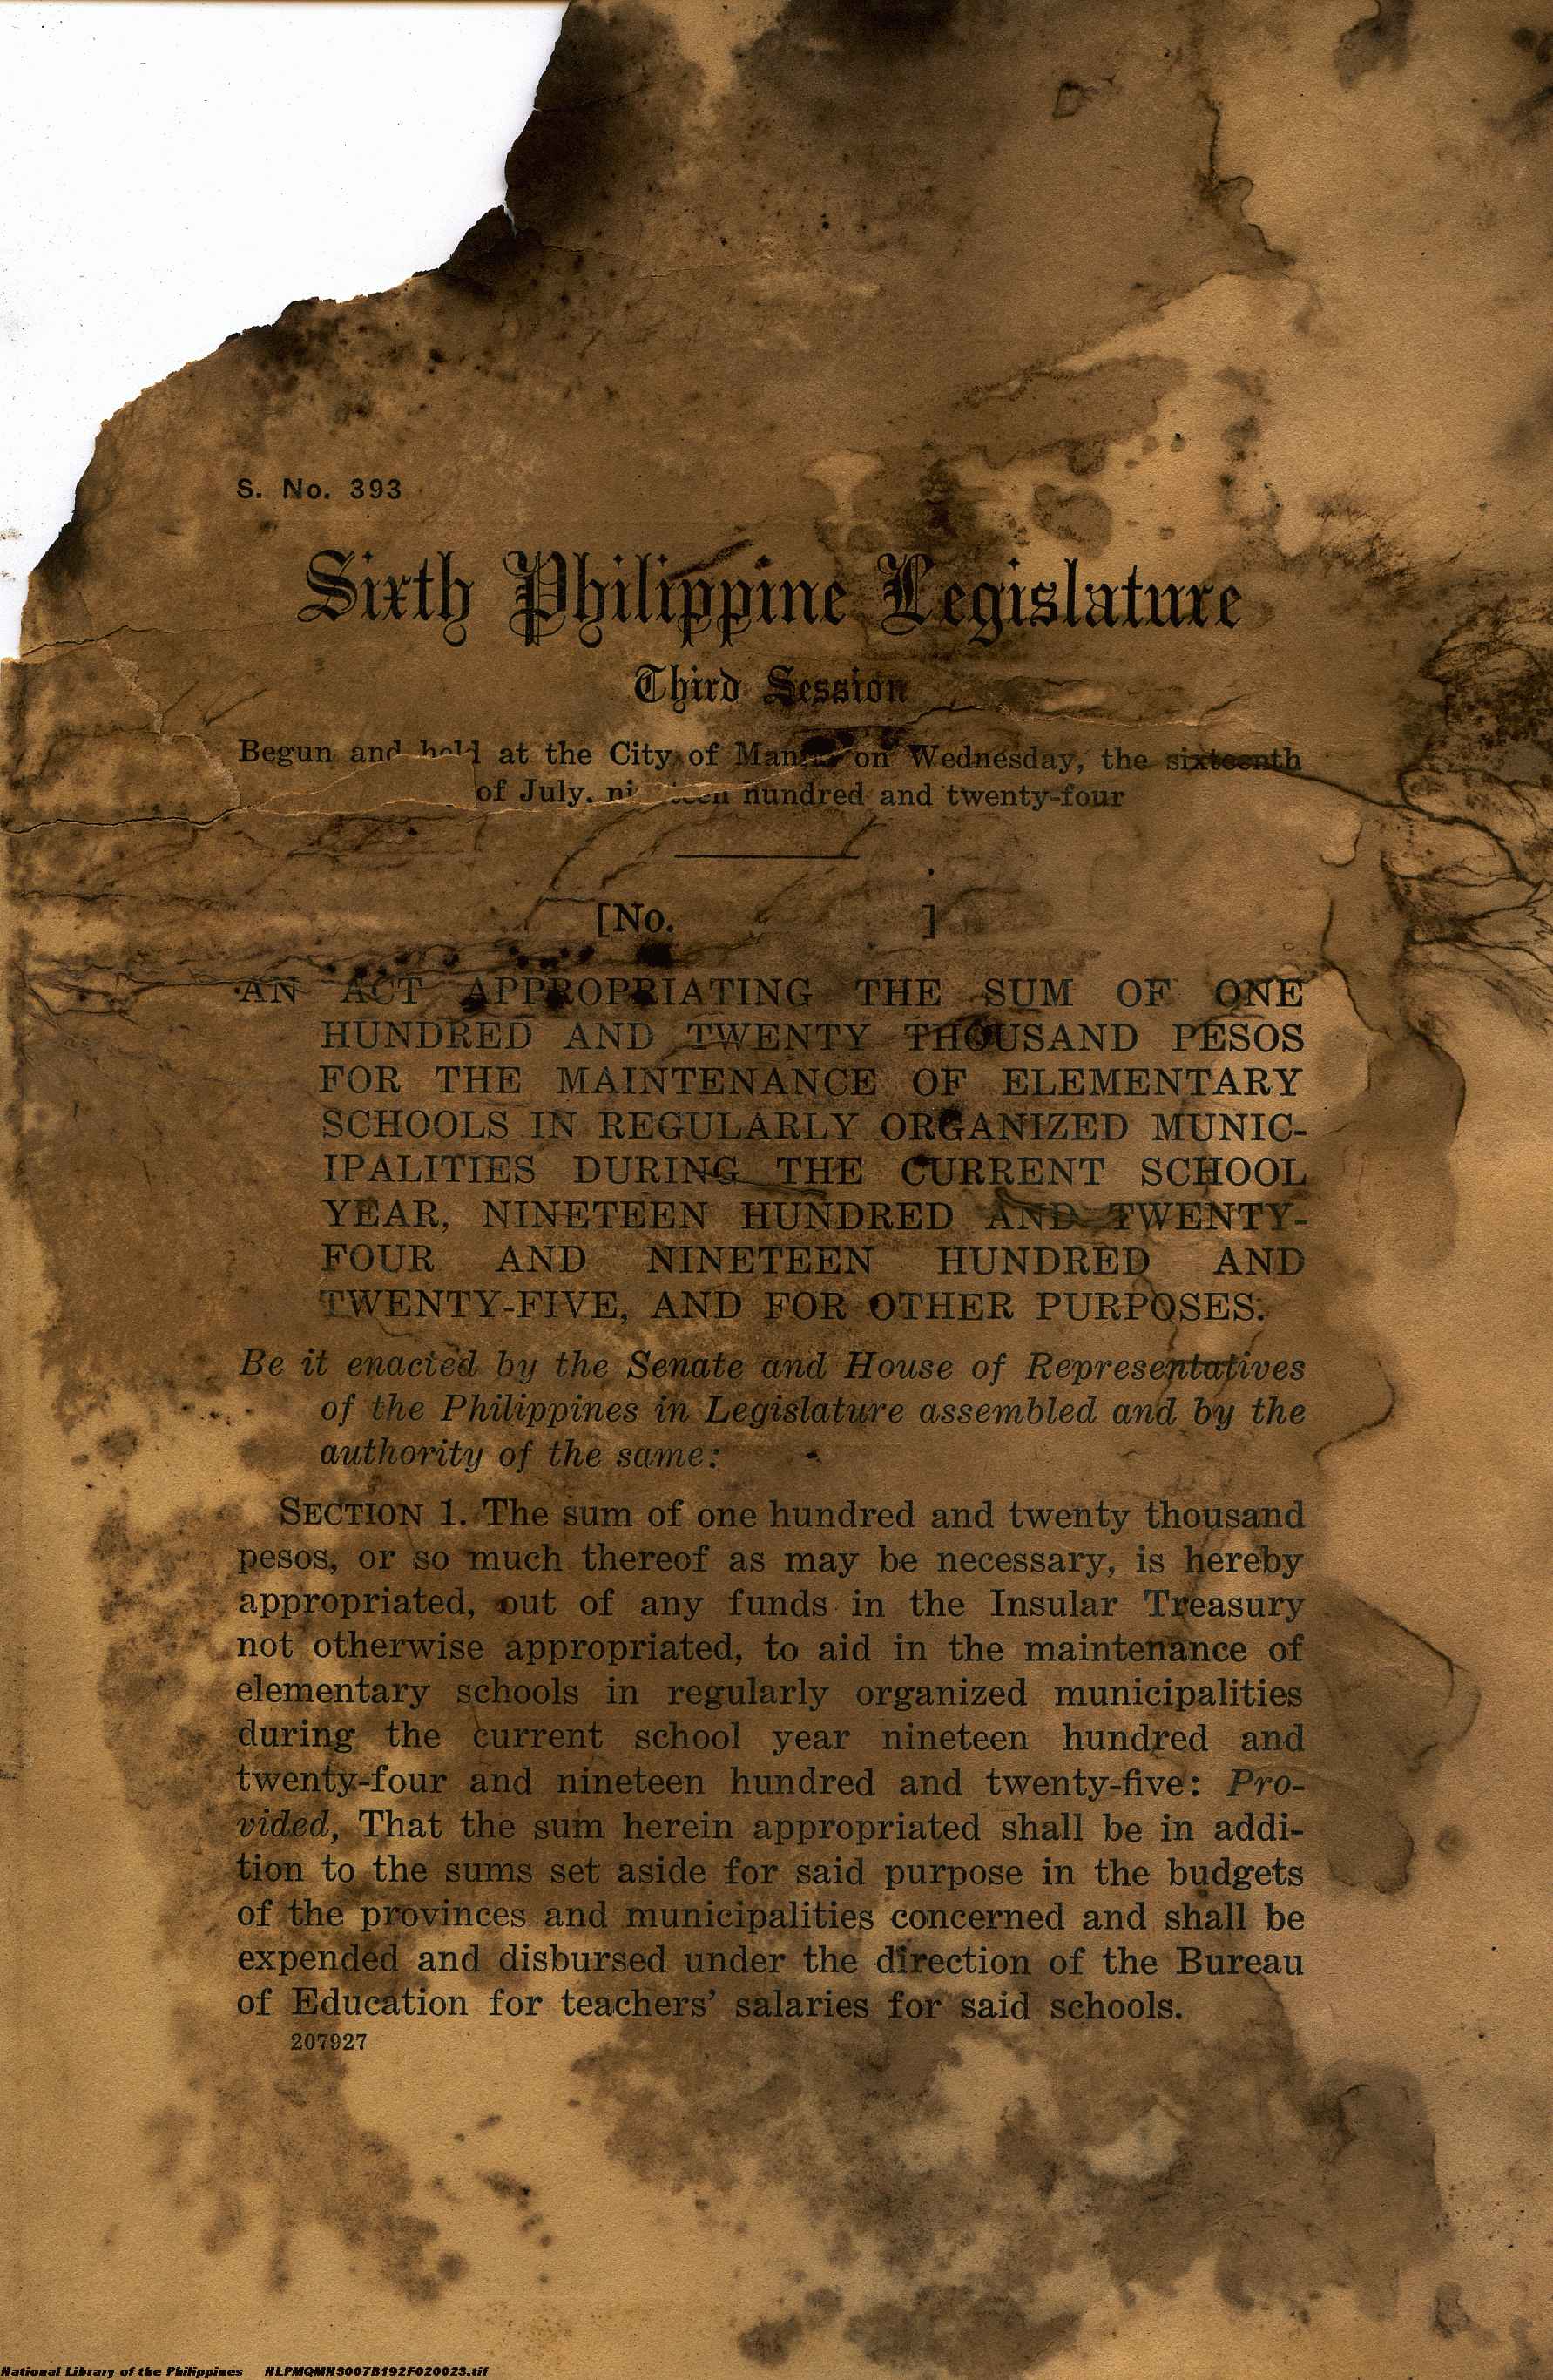 S. No. 393
Sixth Philippine Legislature
Third Session
Begun and held at the City of Manila on Wednesday, the sixteenth
of July, nineteen hundred and twenty-four
[No. ]
AN ACT APPROPRIATING THE SUM OF ONE
HUNDRED AND TWENTY THOUSAND PESOS
FOR THE MAINTENANCE OF ELEMENTARY
SCHOOLS IN REGULARLY ORGANIZED MUNIC-
IPALITIES DURING THE CURRENT SCHOOL
YEAR, NINETEEN HUNDRED AND TWENTY-
FOUR AND NINETEEN HUNDRED AND
TWENTY-FIVE, AND FOR OTHER PURPOSES.
Be it enacted by the Senate and House of Representatives
of the Philippines in Legislature assembled and by the
authority of the same:
SECTION 1. The sum of one hundred and twenty thousand
pesos, or so much thereof as may be necessary, is hereby
appropriated, out of any funds in the Insular Treasury
not otherwise appropriated, to aid in the maintenance of
elementary schools in regularly organized municipalities
during the current school year nineteen hundred and
twenty-four and nineteen hundred and twenty-five: Pro-
vided, That the sum herein appropriated shall be in addi-
tion to the sums set aside for said purpose in the budgets
of the provinces and municipalities concerned and shall be
expended and disbursed under the direction of the Bureau
of Education for teachers' salaries for said schools.
207927
National Library of the Philippines NLPMQMNS007B192F020023.tif